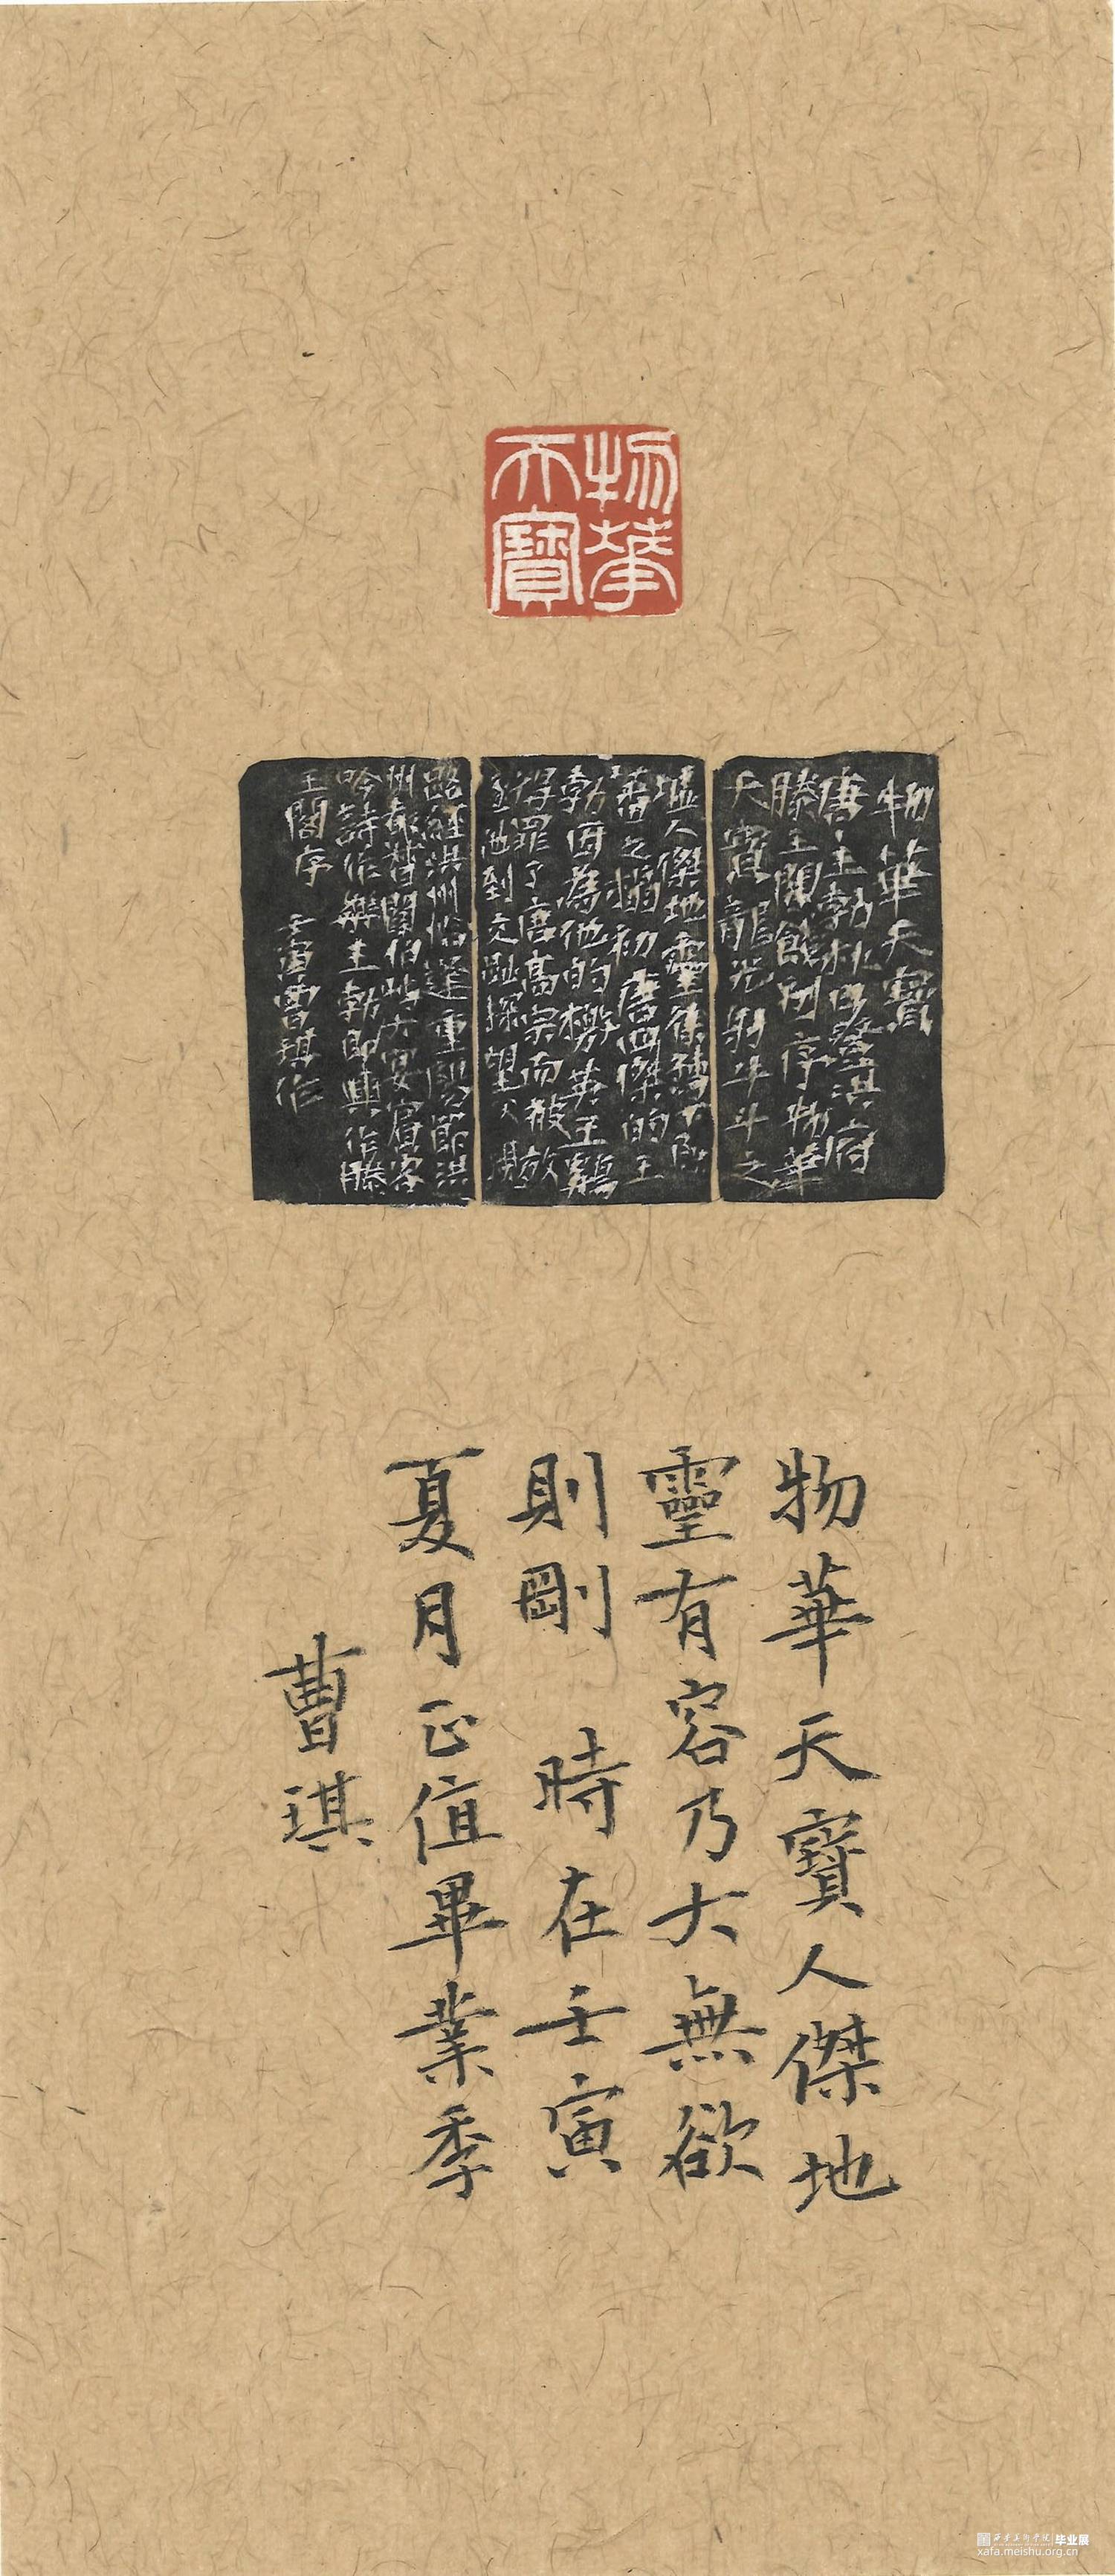 物華
天寶
物華天寶
唐王勃秋日登洪府
滕王閣餞別序物華
天寶龍光射牛斗之
墟人傑地靈徐孺下陳
蕃之榻初唐四傑的王
勃因為他的檄英王鷄
得罪了唐高宗而被放
到交趾探望
路經洪州恰逢重陽節洪
州都督閻伯嶼大宴賓客
吟詩作樂王勃即興作滕
王閣序 壬寅曹琪作
物華天寶人傑地
靈有容乃大無欲
則剛 時在壬寅
夏月正值畢業季
曹琪
西安美術學院 毕业展
xafa.meishu.org.cn